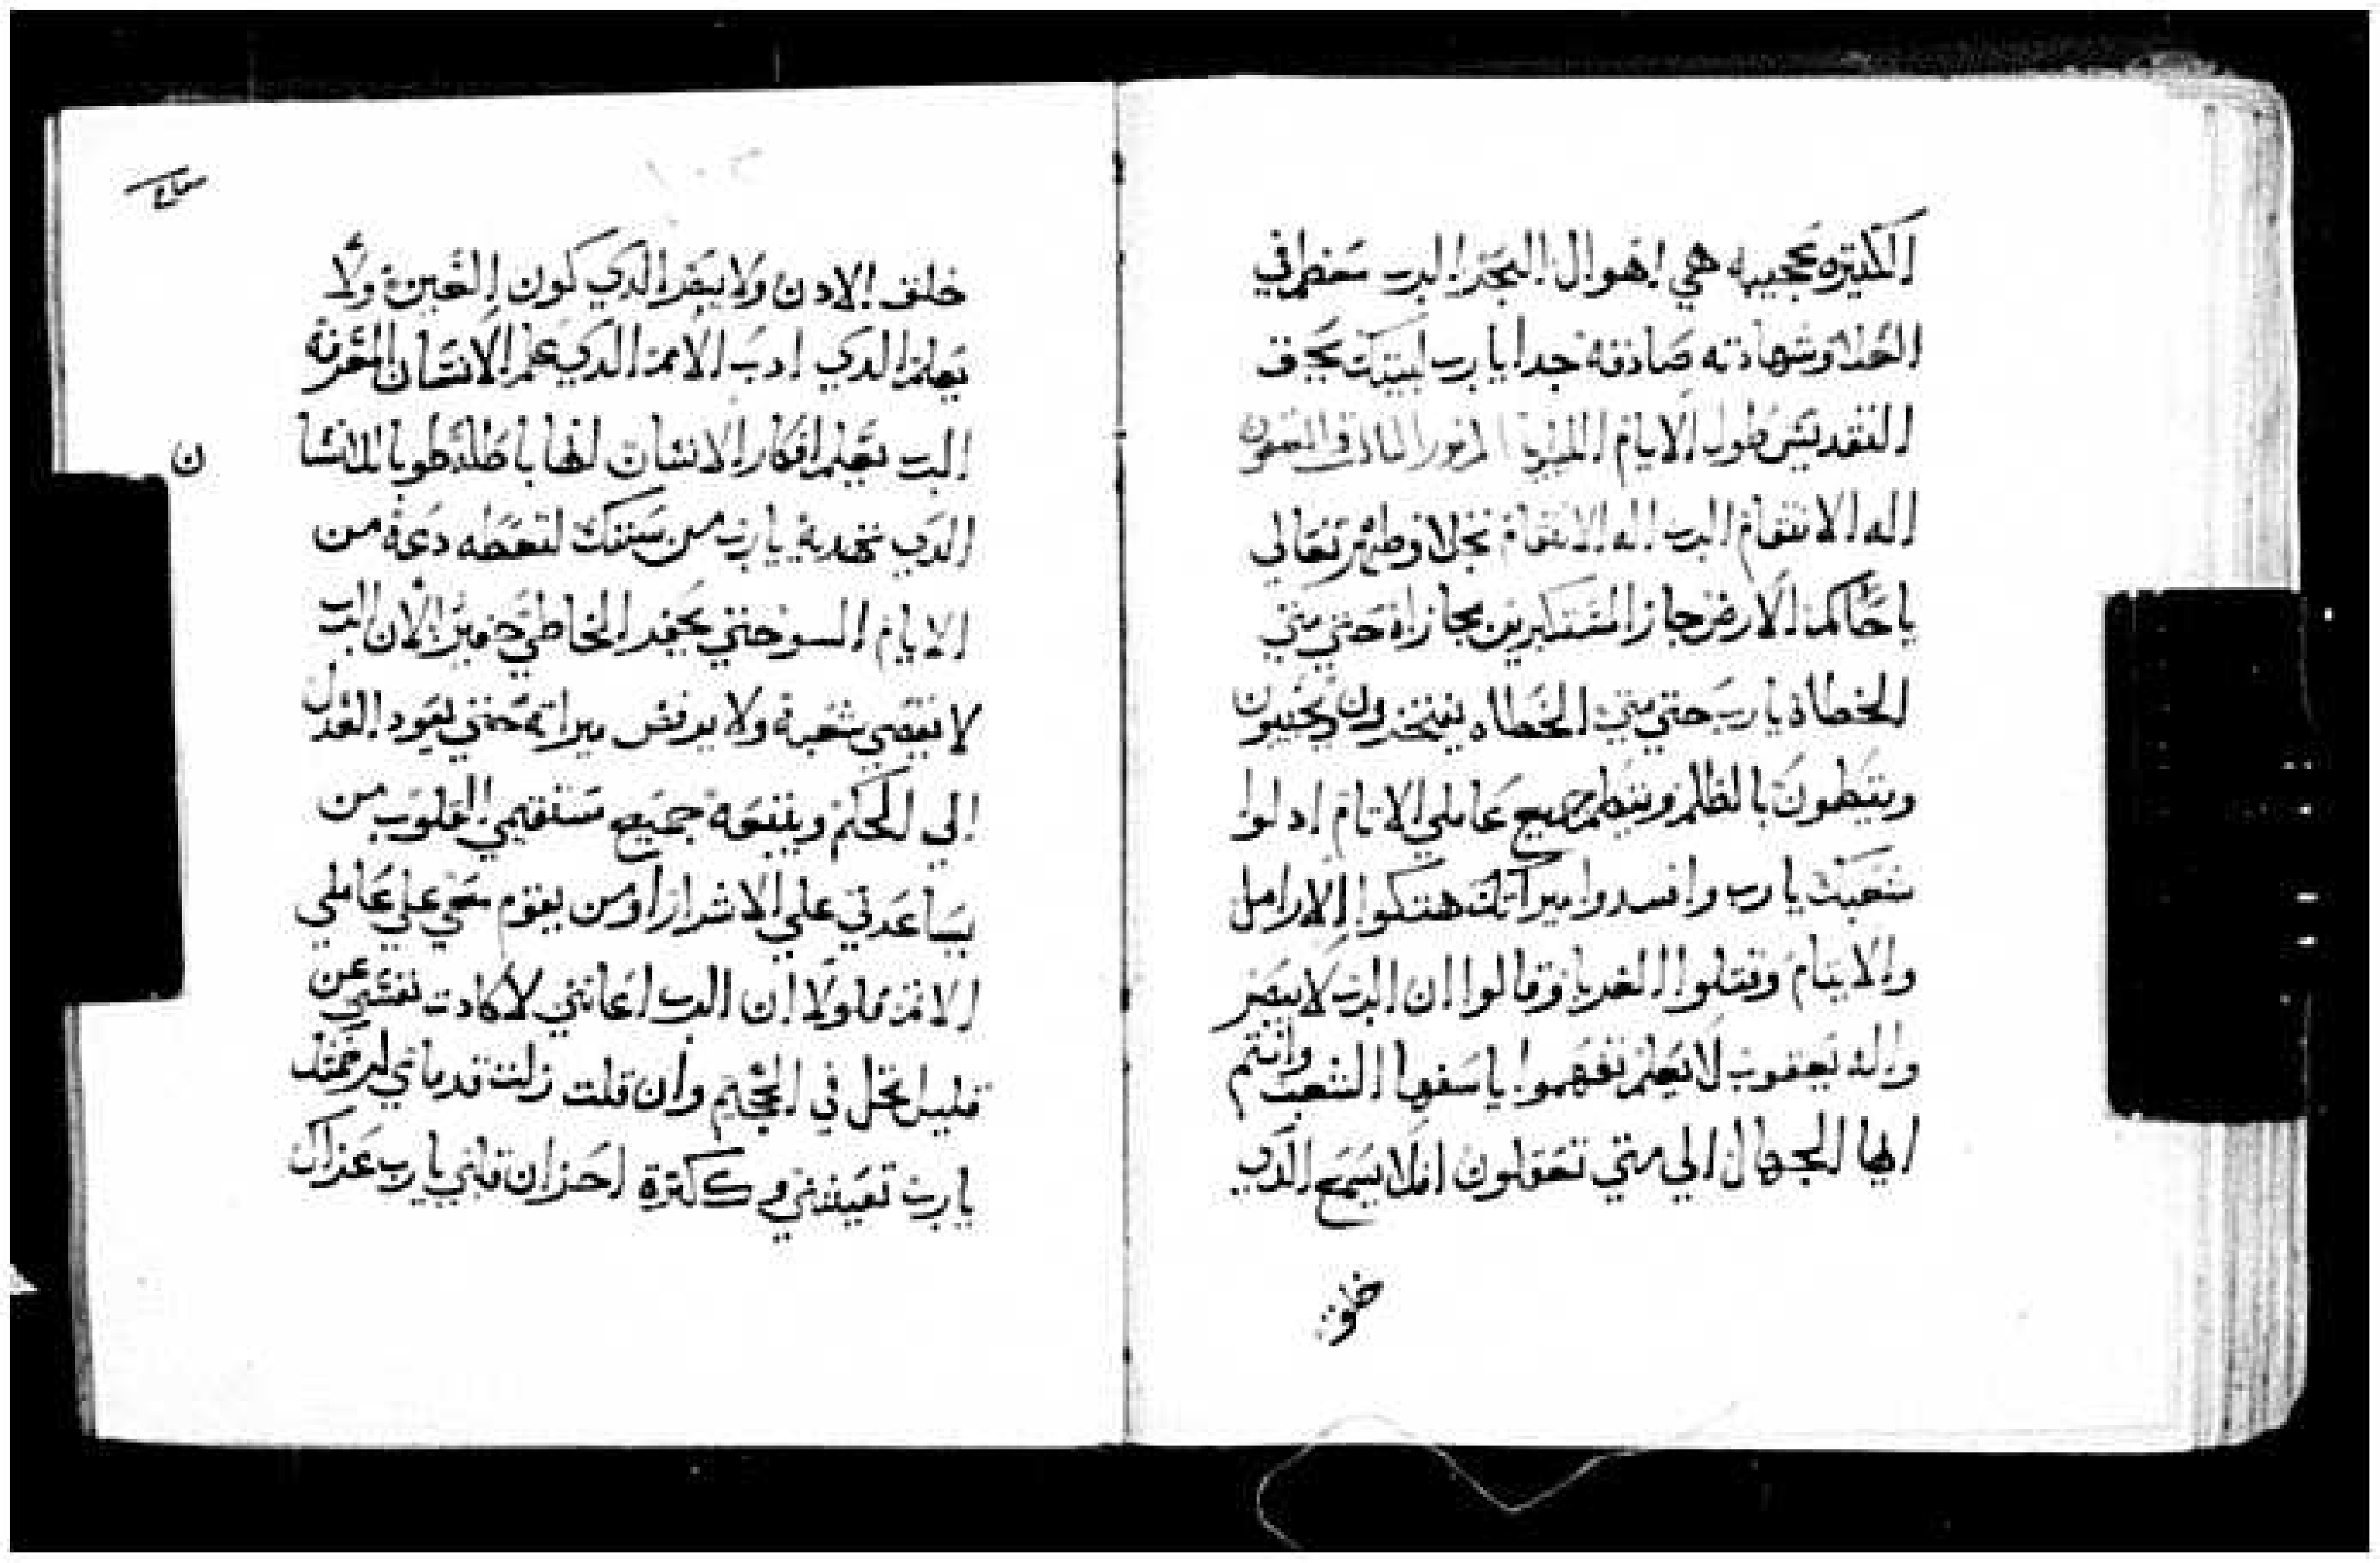 الكثيره عجيبه هي اهوال البحر الرب متعظم في
العلا وشهادته صادقة جدا يارب لبيتك يحق
التقديس طول الايام المزمور الثالث والتسعون
اله الانتقام الرب اله الانتقام تجلا وظهر تعالى
يا حاكم الارض جاز المستكبرين بمجازاة حتي متي
الخطاة يارب حتي متي الخطاه يفتخرون يجيبون
وينطقون بالظلم وينطق جميع عاملي الاثام اذلوا
شعبك يارب وافسدوا ميراثك هتكوا الارامل
والايتام وقتلوا الغربا وقالوا ان الرب لا يبصر
واله يعقوب لا يعلم تفهموا يا سفها الشعب وانتم
ايها الجهال الي متي تعقلون افلا يسمع الدي
خلق
خلق الادن ولا يبصر الدي كون العين ولا
يعلم الدي ادب الامم الدي علم الانسان المعرفة
الرب يعلم افكار الانسان انها باطله طوبا للانسا
ن
الدي تهديه يارب من سنتك لتعطه دعة من
الايام السو حتي يحفر للخاطي حفير لان الرب
لا يقصي شعبه ولا يرفض ميراثه حتي يعود العدل
الي الحكم ويتبعه جميع مستقيمي القلوب من
يساعدني علي الاشرار او من يقوم معي علي عاملي
الاثم فلولا ان الرب اعانني لاكادت نفسي عن
قليل تحل في الجحيم وان قلت زلت قدماي فرحمتك
يارب تعينني وككثرة احزان قلبي يارب عزاك